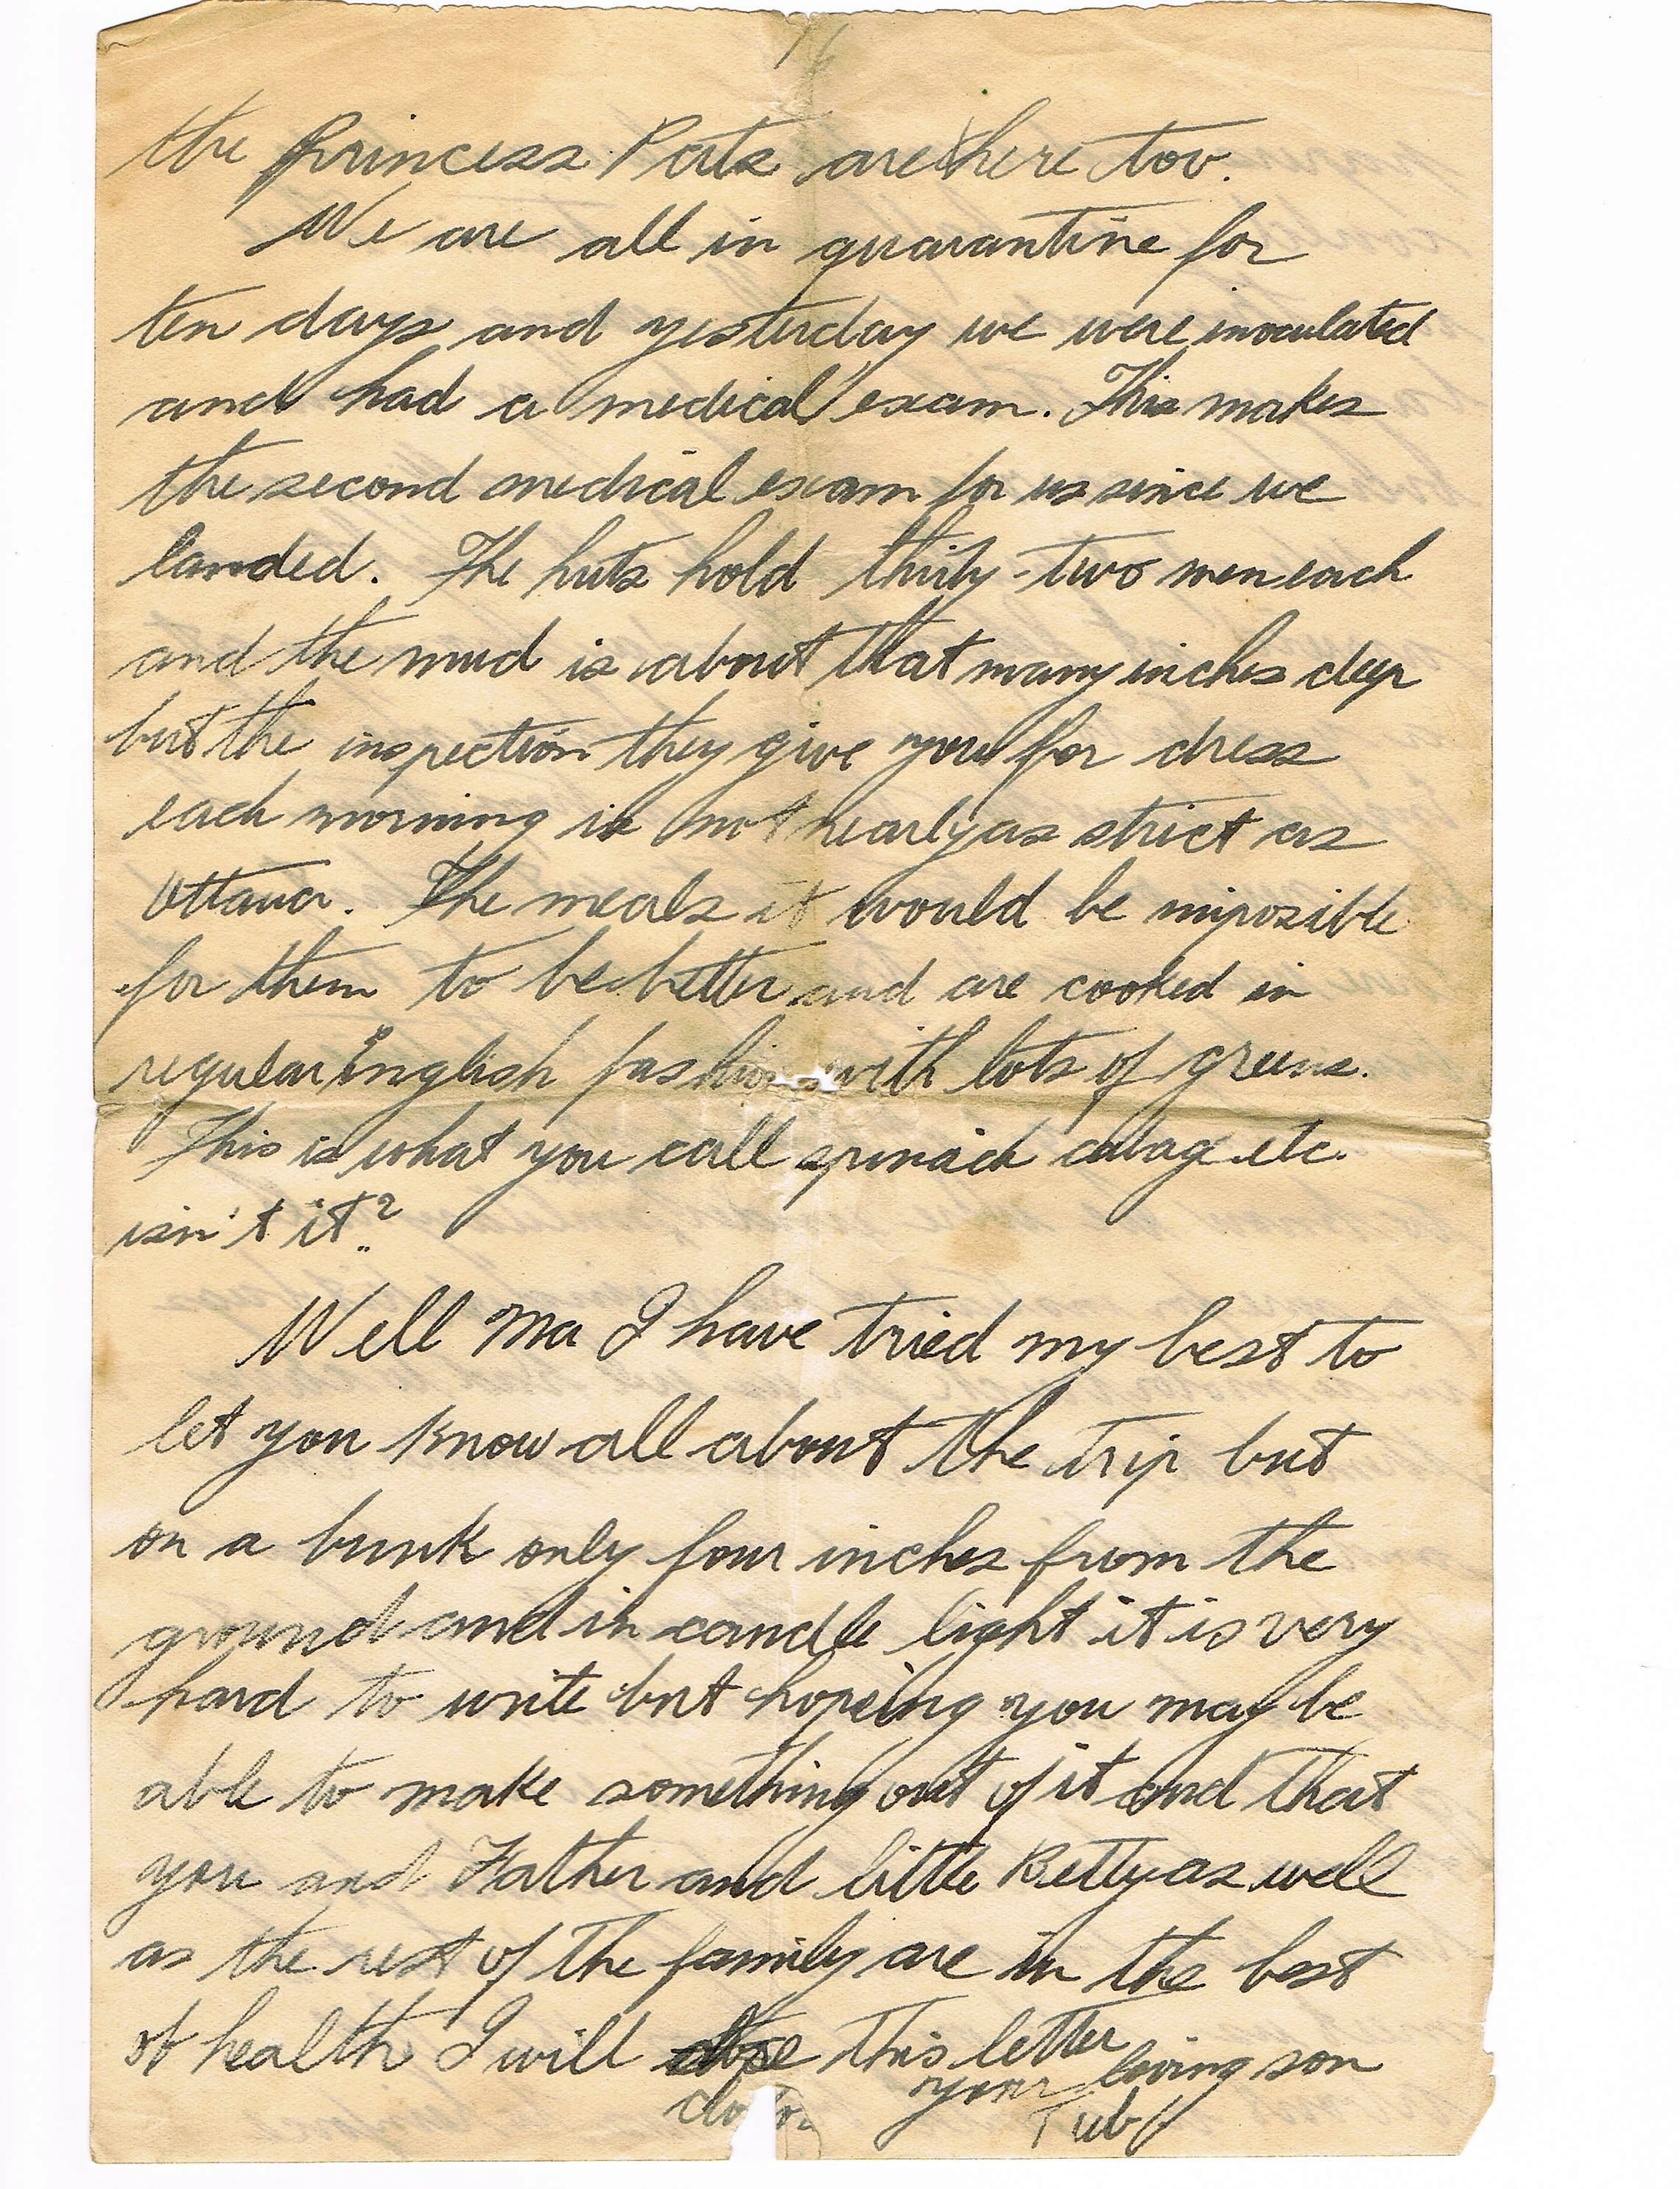 16
the Princess Pats are here too.
We are all in quarantine for
ten days and yesterday we were inoculated
and had a medical exam. This makes
the second medical exam for us since we
landed. The huts hold thirty-two men each
and the mud is about that many inches deep
but the inspection they give you for dress
each morning is not nearly as strict as
Ottawa. The meals it would be imposible
for them to be better and are cooked in
regular English fashion with lots of greens.
This is what you call spinach cabage etc.
isn't it?
Well Ma I have tried my best to
let you know all about the trip but
on a bunk only four inches from the
ground and in candle light it is very
hard to write but hopeing you may be
able to make something out of it and that
you and Father and little Betty as well
as the rest of the family are in the best
of health I will close this letter
your loving son
Tubby